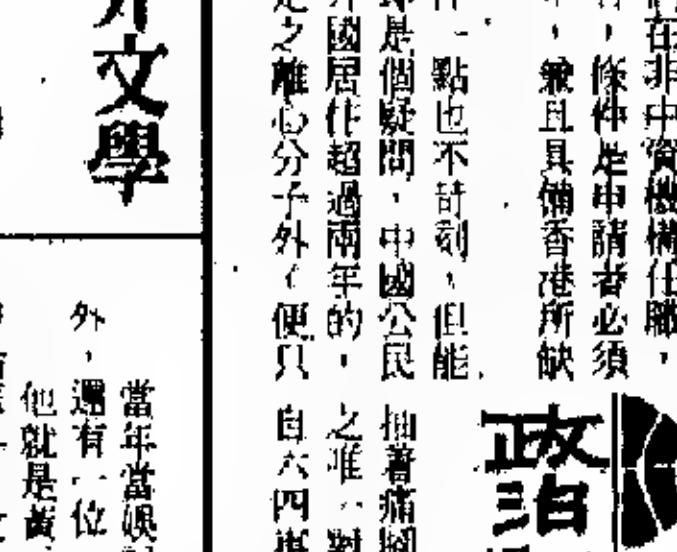 們在非中資機構任職，
，條件是申請者必須
，兼且具備香港所缺
一點也不苛刻，但能
是個疑問，中國公民
國居住超過兩年的，
之離心分子外（便只
政治
抽著痛腳
之唯一對
自六四事
文學
當年當娛
外，還有一位
他就是黃